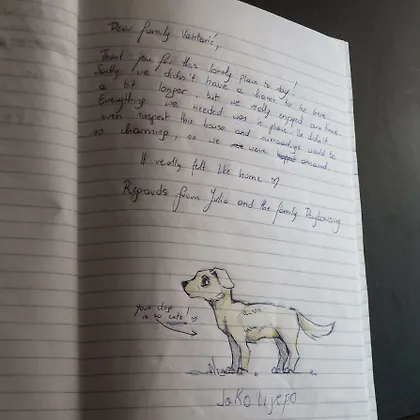 Dear family
Thank you for this lovely place to stay!
Sadly we didn't have a chance to be here
a bit longer, but we really enjoyed our time.
Everything we needed was in place. We didn't
even expect this house and surroundings would be
so charming, so we were amazed.
It really felt like home ♡
Regards from Julia and the family
Your dog
is so cute! ♡
JaKo Lijepo